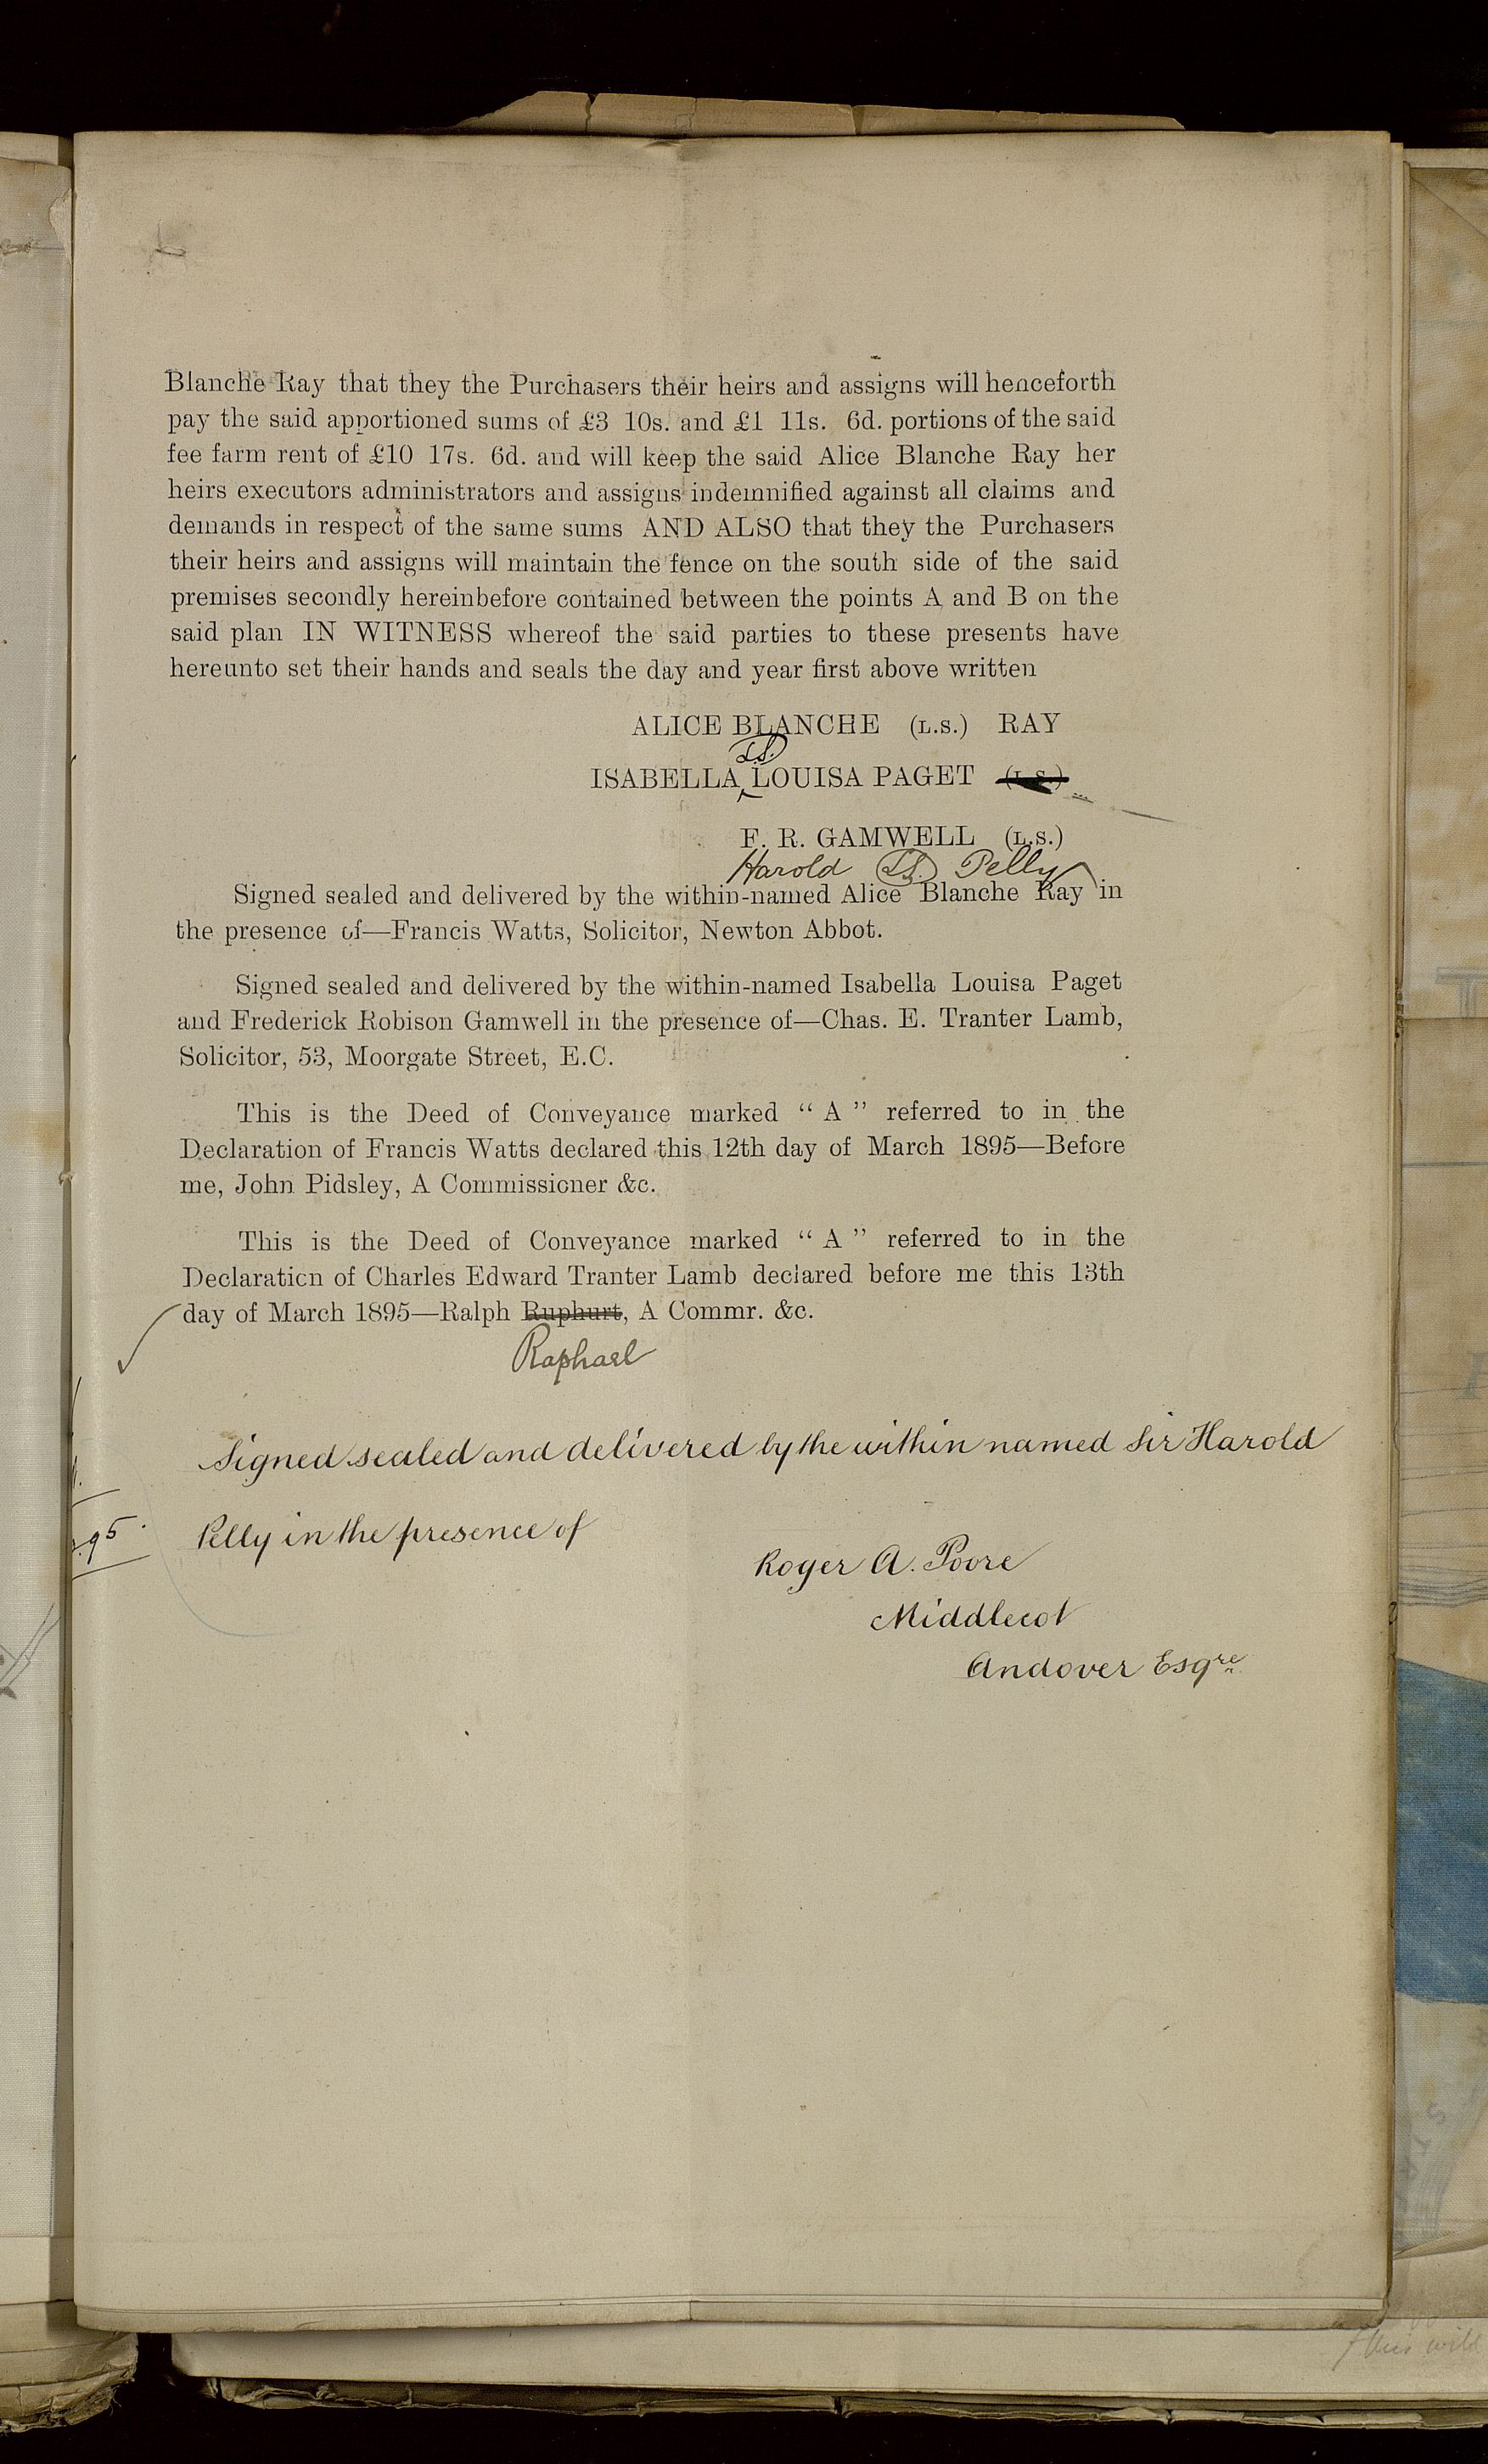 Blanche Ray that they the Purchasers their heirs and assigns will henceforth
pay the said apportioned sums of £3 10s. and £1 11s. 6d. portions of the said
fee farm rent of £10 17s. 6d. and will keep the said Alice Blanche Ray her
heirs executors administrators and assigns indemnified against all claims and
demands in respect of the same sums AND ALSO that they the Purchasers
their heirs and assigns will maintain the fence on the south side of the said
premises secondly hereinbefore contained between the points A and B on the
said plan IN WITNESS whereof the said parties to these presents have
hereunto set their hands and seals the day and year first above written
ALICE BLANCHE (L.S.) RAY
L.S.
ISABELLA LOUISA PAGET (L.S.)
F. R. GAMWELL (L.S.)
Harold L.S. Pelly
Signed sealed and delivered by the within-named Alice Blanche Ray in
the presence of—Francis Watts, Solicitor, Newton Abbot.
Signed sealed and delivered by the within-named Isabella Louisa Paget
and Frederick Robison Gamwell in the presence of—Chas. E. Tranter Lamb,
Solicitor, 53, Moorgate Street, E.C.
This is the Deed of Conveyance marked “ A ” referred to in the
Declaration of Francis Watts declared this 12th day of March 1895—Before
me, John Pidsley, A Commissioner &c.
This is the Deed of Conveyance marked “ A ” referred to in the
Declaration of Charles Edward Tranter Lamb declared before me this 13th
day of March 1895—Ralph Ruphurt, A Commr. &c.
Raphael
Signed sealed and delivered by the within named Sir Harold
Pelly in the presence of
Roger A. Poore
Middlecot
Andover Esqre
95.
this will